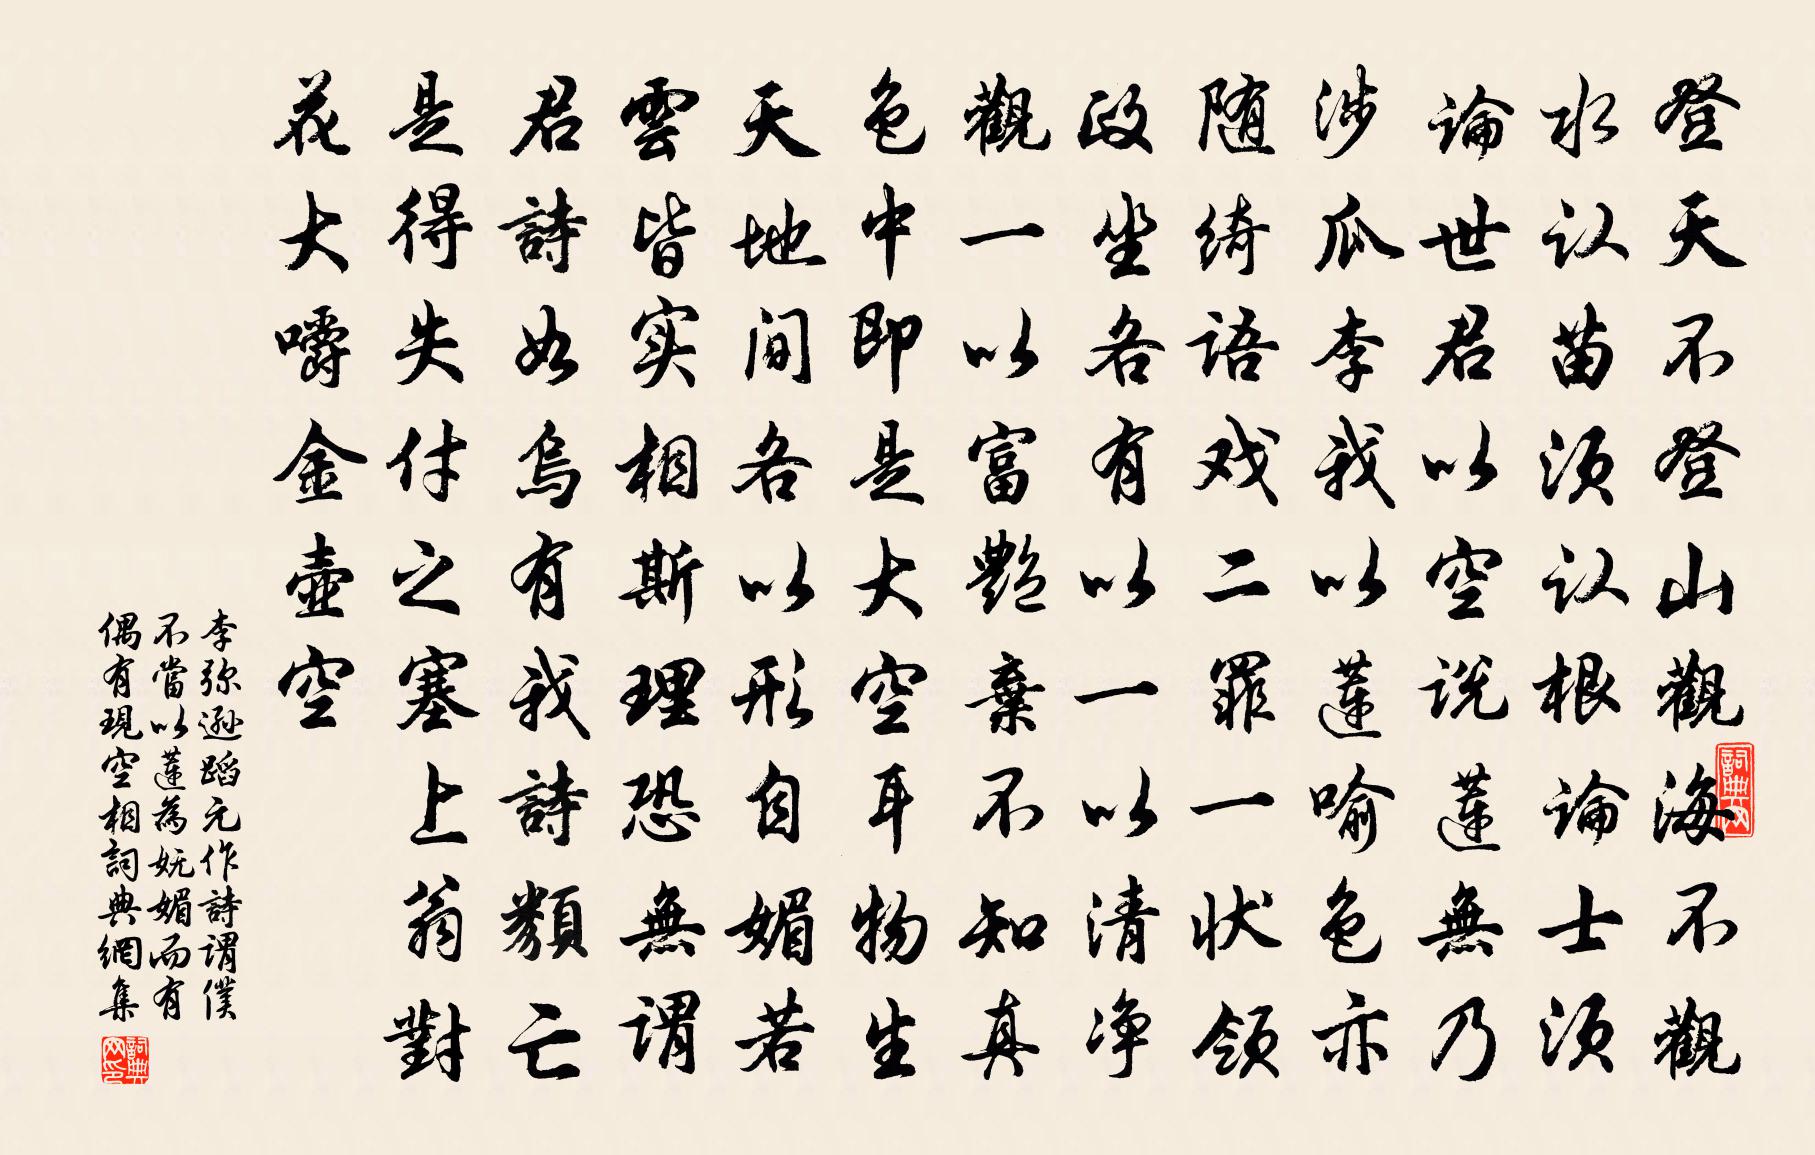 登天不登山觀海不觀
水认苗须认根論士须
論世君以空说蓮無乃
涉瓜李我以蓮喻色亦
随綺语戏二罪一状领
政坐各有以一以清净
觀一以富艶棄不知真
色中即是大空耳物生
天地间各以形自媚若
雲皆实相斯理恐無谓
君詩如烏有我詩類亡
是得失付之塞上翁對
花大嚼金壷空
李弥遜蹈元作詩谓僕
不當以蓮為妩媚而有
偶有現空相詞典網集
詞典